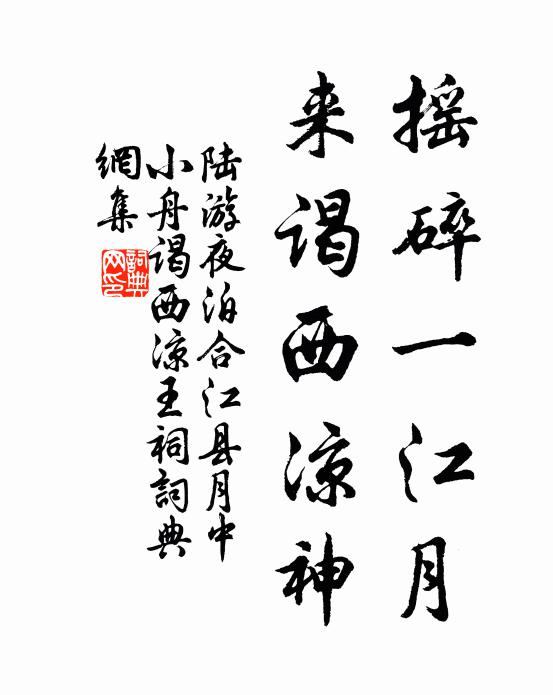 摇碎一江月
来谒西凉神
陆游夜泊合江县月中
小舟谒西凉王祠詞典
網集
詞典網印